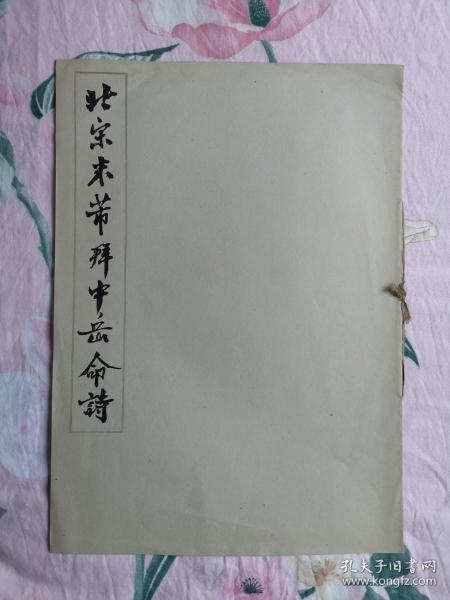 北宋米芾拜中岳命詩
孔夫子旧书网
www.kongfz.com